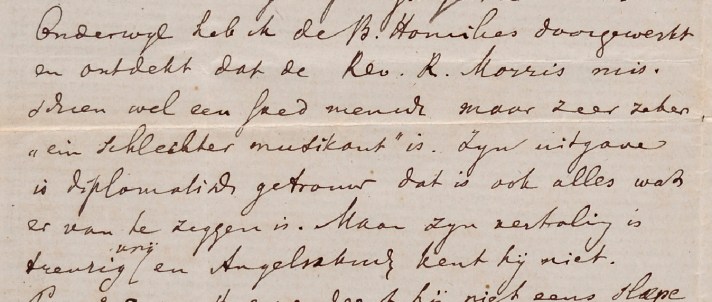 Onderwyl heb ik de B. Homilies doorgewerkt
en ontdekt dat de Rev. R. Morris mis-
schien wel een goed mensch maar zeer zeker
„ein schlechter musikant" is. Zyn uitgave
is diplomatisch getrouw dat is ook alles wat
er van te zeggen is. Maar zyn vertaling is
vrij
treurig en Angelsaksisch kent hij niet.
hij niet eens